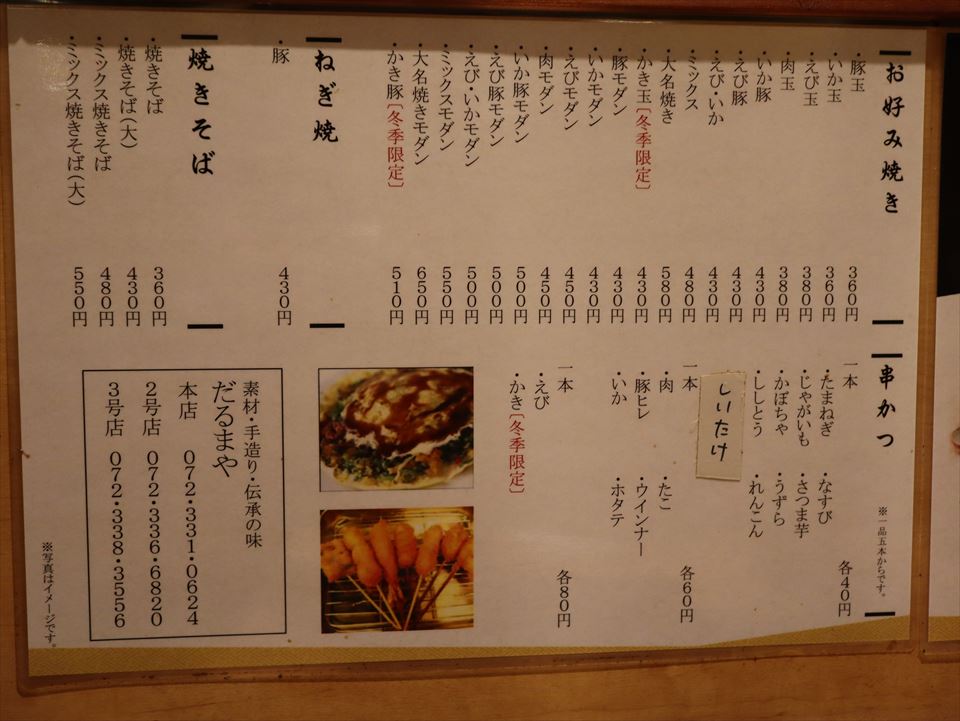 お好み焼き
・豚玉 360円
・いか玉 360円
・えび玉 380円
・肉玉 380円
・いか豚 430円
・えび豚 430円
・えび・いか 430円
・ミックス 480円
・大名焼き 580円
・かき玉［冬季限定］ 430円
・豚モダン 430円
・いかモダン 430円
・えびモダン 450円
・肉モダン 450円
・いか豚モダン 500円
・えび豚モダン 500円
・えび・いかモダン 500円
・ミックスモダン 550円
・大名焼きモダン 650円
・かき豚［冬季限定］ 510円
ねぎ焼
・豚 430円
焼きそば
・焼きそば 360円
・焼きそば（大） 430円
・ミックス焼きそば 480円
・ミックス焼きそば（大） 550円
串かつ
※一品五本からです。
一本 各40円
・たまねぎ ・なすび
・じゃがいも ・さつま芋
・かぼちゃ ・うずら
・ししとう ・れんこん
しいたけ
一本 各60円
・肉 ・たこ
・豚ヒレ ・ウインナー
・いか ・ホタテ
一本 各80円
・えび
・かき［冬季限定］
素材・手造り・伝承の味
だるまや
本店 072・331・0624
2号店 072・336・6820
3号店 072・338・3556
※写真はイメージです。